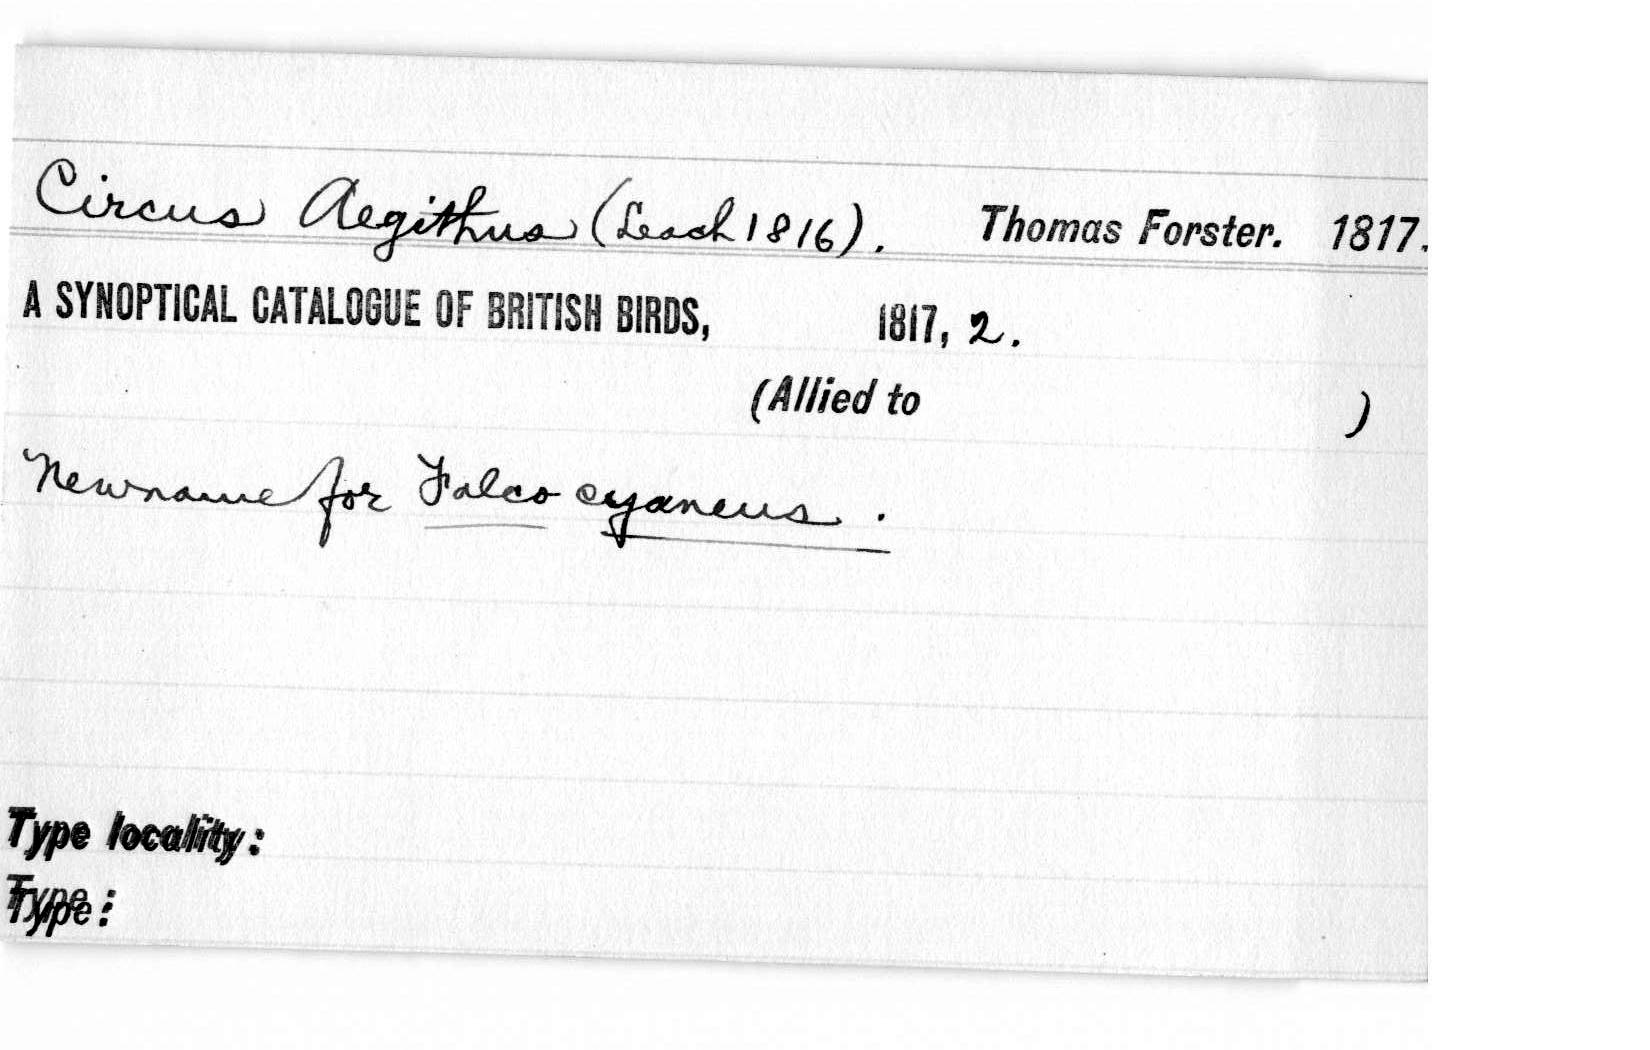 Circus Aegithus (Leach 1816). Thomas Forster. 1817.
A SYNOPTICAL CATALOGUE OF BRITISH BIRDS, 1817, 2.
(Allied to )
New name for Falco cyaneus.
Type locality:
Type: